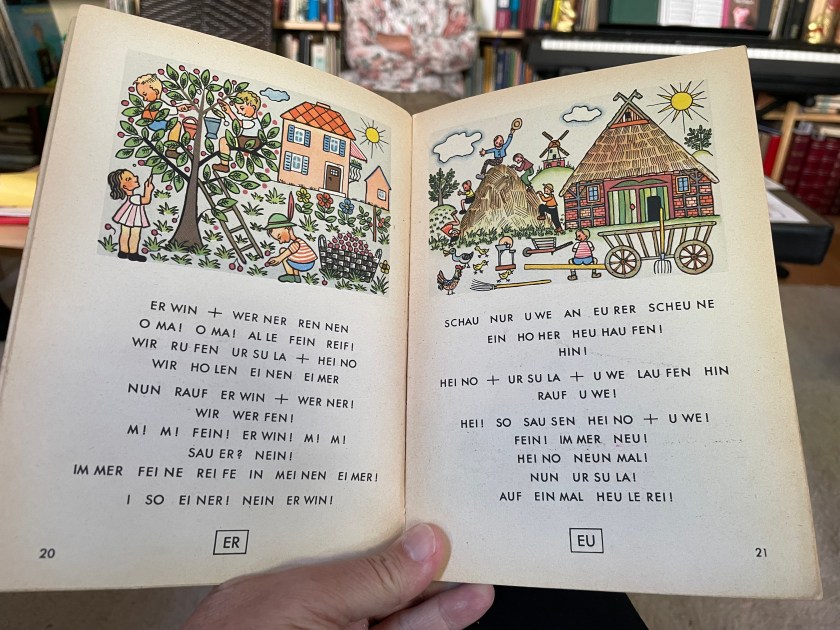 ER WIN + WER NER REN NEN
O MA! O MA! AL LE FEIN REIF!
WIR RU FEN UR SU LA + HEI NO
WIR HO LEN EI NEN EI MER
NUN RAUF ER WIN + WER NER!
WIR WER FEN!
M! M! FEIN! ER WIN! M! M!
SAU ER? NEIN!
IM MER FEI NE REI FE IN MEI NEN EI MER!
I SO EI NER! NEIN ER WIN!
ER
20
SCHAU NUR U WE AN EU RER SCHEU NE
EIN HO HER HEU HAU FEN!
HIN!
HEI NO + UR SU LA + U WE LAU FEN HIN
RAUF U WE!
HEI! SO SAU SEN HEI NO + U WE!
FEIN! IM MER NEU!
HEI NO NEUN MAL!
NUN UR SU LA!
AUF EIN MAL HEU LE REI!
EU
21